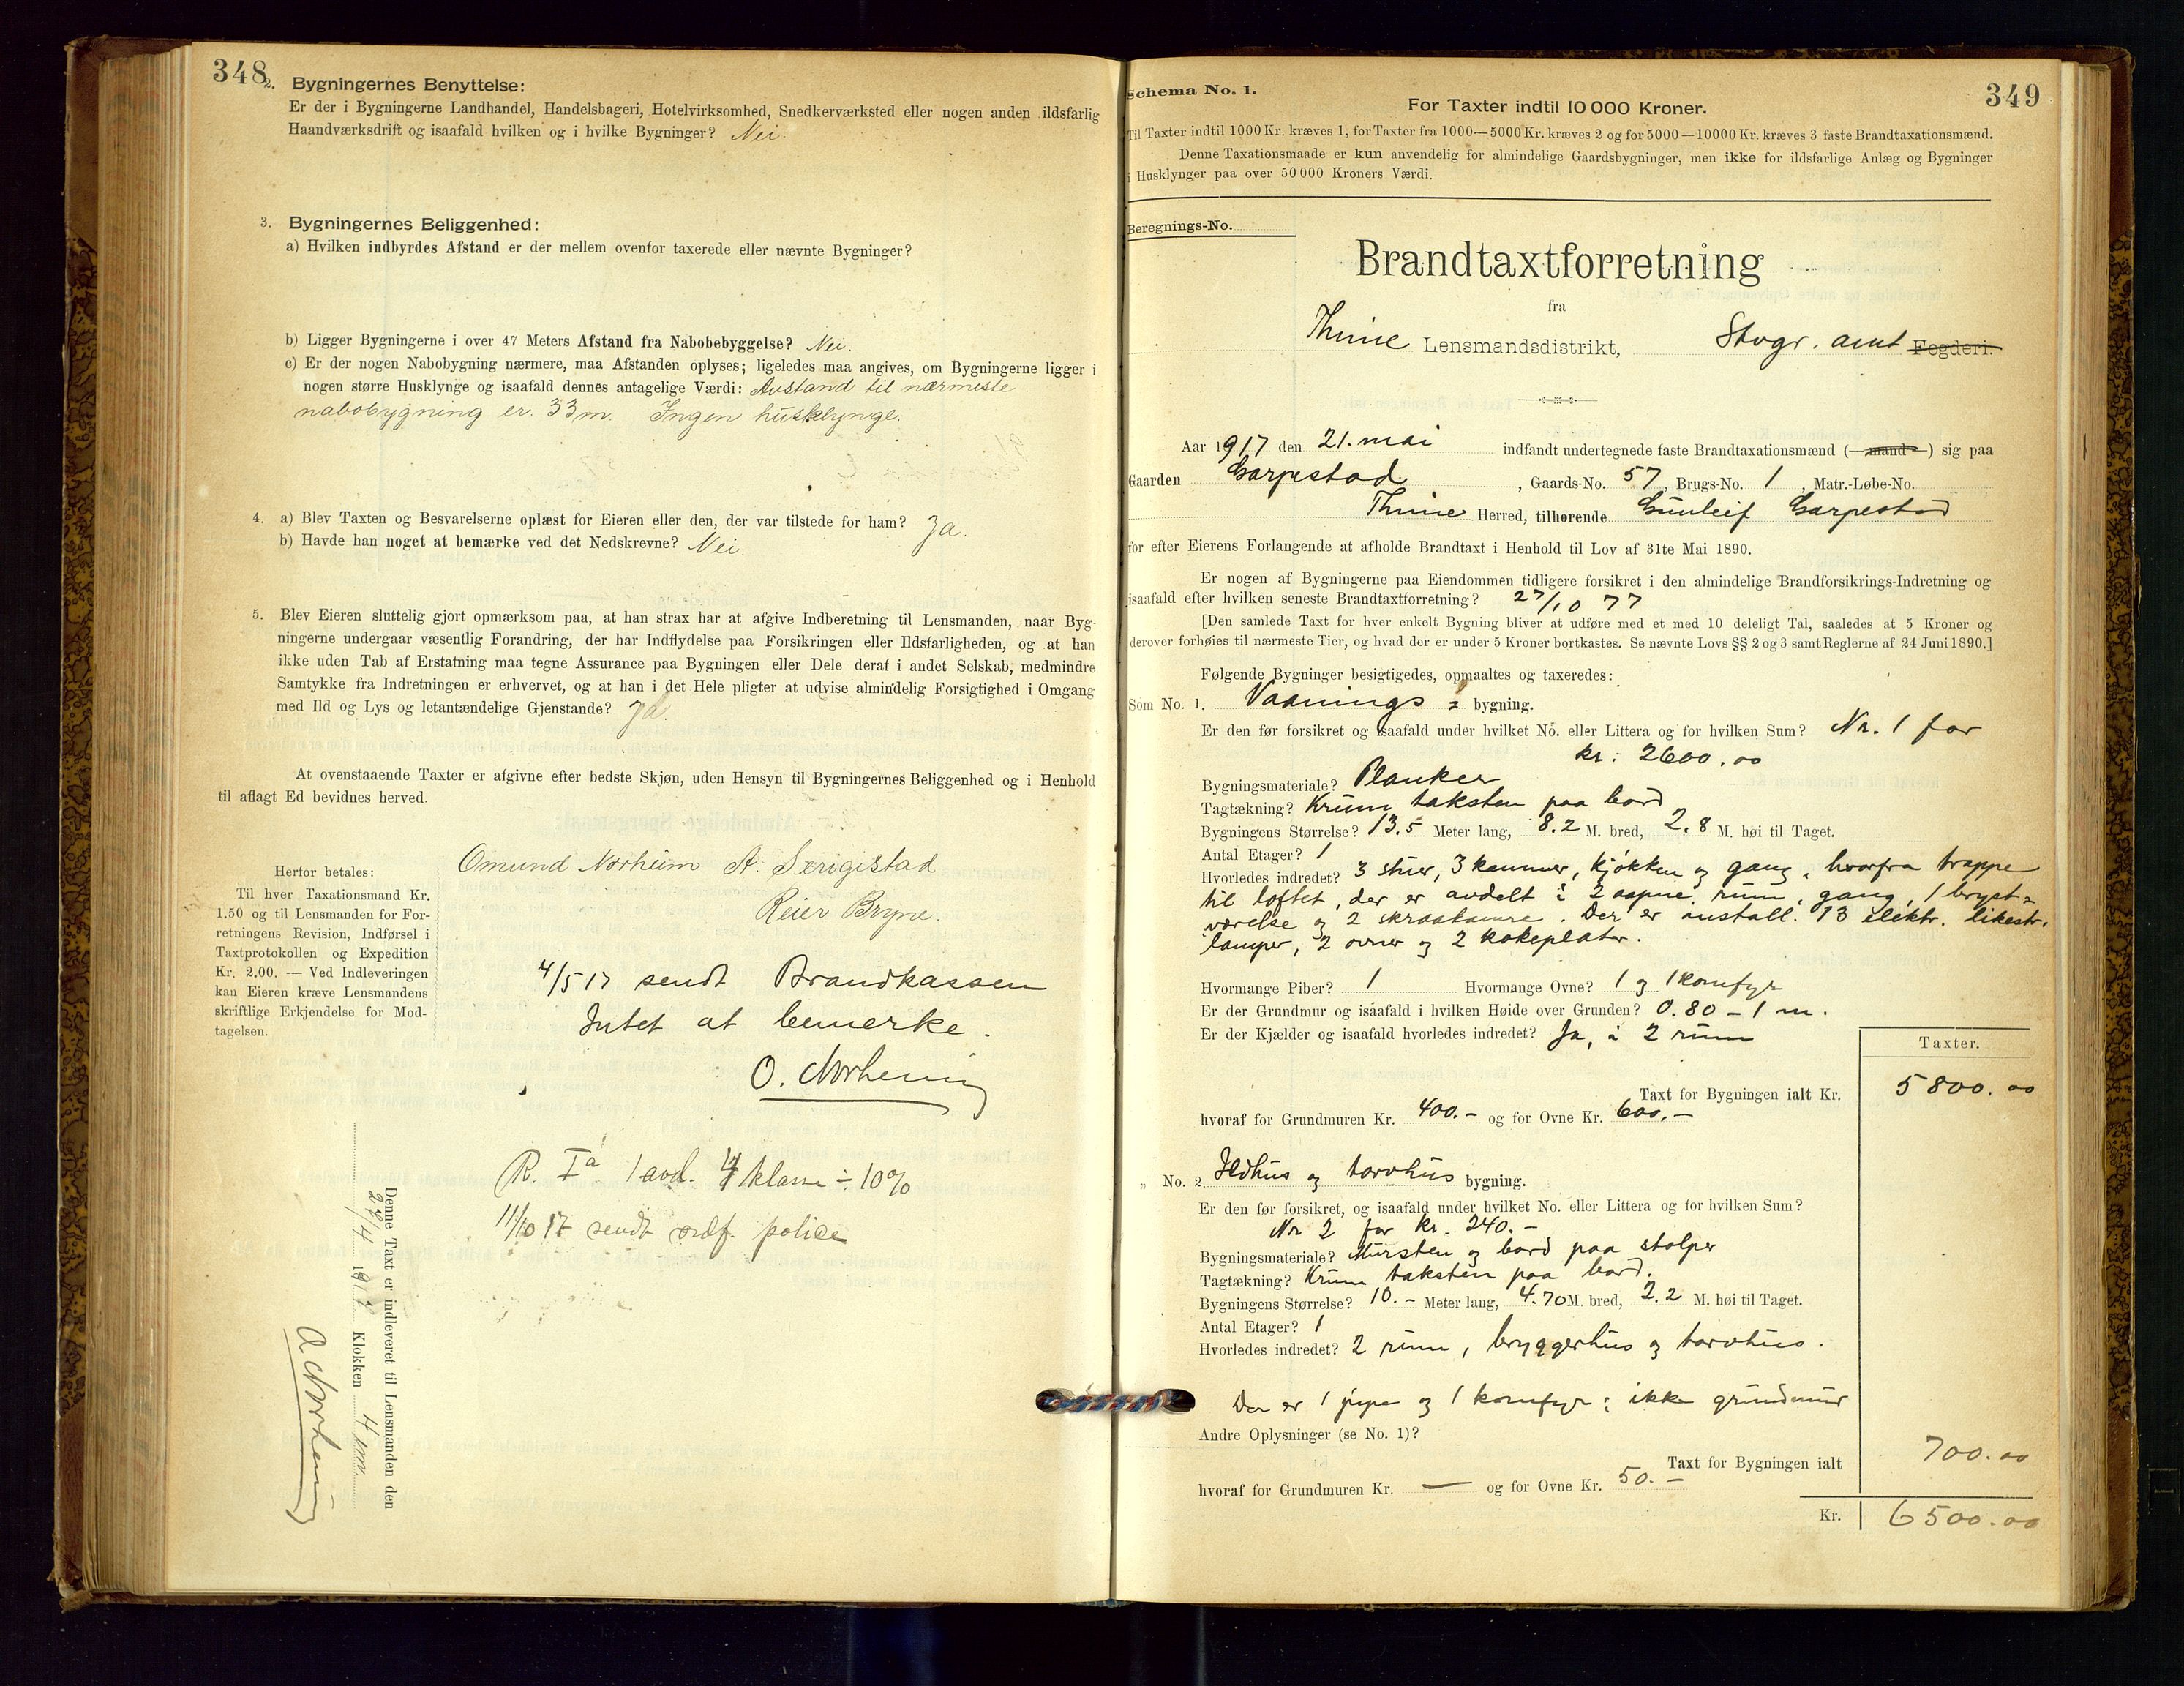 348
2. Bygningernes Benyttelse:
Er der i Bygningerne Landhandel, Handelsbageri, Hotelvirksomhed, Snedkerværksted eller nogen anden ildsfarlig
Haandværksdrift og isaafald hvilken og i hvilke Bygninger? Nei.
3. Bygningernes Beliggenhed:
a) Hvilken indbyrdes Afstand er der mellem ovenfor taxerede eller nævnte Bygninger?
b) Ligger Bygningerne i over 47 Meters Afstand fra Nabobebyggelse? Nei.
c) Er der nogen Nabobygning nærmere, maa Afstanden oplyses; ligeledes maa angives, om Bygningerne ligger i
nogen større Husklynge og isaafald dennes antagelige Værdi: Avstand til nærmeste
nabobygning er. 33 m. Ingen husklynge.
4. a) Blev Taxten og Besvarelserne oplæst for Eieren eller den, der var tilstede for ham? Ja.
b) Havde han noget at bemærke ved det Nedskrevne? Nei.
5. Blev Eieren sluttelig gjort opmærksom paa, at han strax har at afgive Indberetning til Lensmanden, naar Byg-
ningerne undergaar væsentlig Forandring, der har Indflydelse paa Forsikringen eller Ildsfarligheden, og at han
ikke uden Tab af Erstatning maa tegne Assurance paa Bygningen eller Dele deraf i andet Selskab, medmindre
Samtykke fra Indretningen er erhvervet, og at han i det Hele pligter at udvise almindelig Forsigtighed i Omgang
med Ild og Lys og letantændelige Gjenstande? Ja.
At ovenstaaende Taxter er afgivne efter bedste Skjøn, uden Hensyn til Bygningernes Beliggenhed og i Henhold
til aflagt Ed bevidnes herved.
Omund Norheim A. Serigstad
Reier Bryne.
Herfor betales:
Til hver Taxationsmand Kr.
1.50 og til Lensmanden for For-
retningens Revision, Indførsel i
Taxtprotokollen og Expedition
Kr. 2.00. — Ved Indleveringen
kan Eieren kræve Lensmandens
skriftlige Erkjendelse for Mod-
tagelsen.
4/5 17 sendt Brandkassen
Intet at bemerke.
O. Norheim
R. Ia 1 avd. 4 klasse ÷ 10%
11/10 17 sendt ordf. police
Denne Taxt er indleveret til Lensmanden den
/4 1917 Klokken 4 em.
O Norheim
349
Schema No. 1.
For Taxter indtil 10 000 Kroner.
Til Taxter indtil 1000 Kr. kræves 1, for Taxter fra 1000—5000 Kr. kræves 2 og for 5000—10000 Kr. kræves 3 faste Brandtaxationsmænd.
Denne Taxationsmaade er kun anvendelig for almindelige Gaardsbygninger, men ikke for ildsfarlige Anlæg og Bygninger
i Husklynger paa over 50 000 Kroners Værdi.
Beregnings-No.
Brandtaxtforretning
fra
Thime Lensmandsdistrikt, Stvgr. amt Fogderi.
Aar 1917 den 21. mai indfandt undertegnede faste Brandtaxationsmænd (— mand —) sig paa
Gaarden Garpestad, Gaards-No. 57, Brugs-No. 1, Matr.-Løbe-No.
Thime Herred, tilhørende Gunleif Garpestad
for efter Eierens Forlangende at afholde Brandtaxt i Henhold til Lov af 31te Mai 1890.
Er nogen af Bygningerne paa Eiendommen tidligere forsikret i den almindelige Brandforsikrings-Indretning og
isaafald efter hvilken seneste Brandtaxtforretning? 27/10 77
[Den samlede Taxt for hver enkelt Bygning bliver at udføre med et med 10 deleligt Tal, saaledes at 5 Kroner og
derover forhøies til nærmeste Tier, og hvad der er under 5 Kroner bortkastes. Se nævnte Lovs §§ 2 og 3 samt Reglerne af 24 Juni 1890.]
Følgende Bygninger besigtigedes, opmaaltes og taxeredes:
Som No. 1. Vaanings = bygning.
Er den før forsikret og isaafald under hvilket No. eller Littera og for hvilken Sum? Nr. 1 for
kr: 2600.00
Bygningsmateriale? Planker
Tagtækning? Krum taksten paa bord
Bygningens Størrelse? 13.5 Meter lang, 8.2 M. bred, 2.8 M. høi til Taget.
Antal Etager? 1
Hvorledes indredet? 3 stuer, 3 kammer, kjøkken og gang, hvorfra trappe
til loftet, der er avdelt i 2 aapne rum, gang, 1 kvist=
værelse og 2 skraakamre. Der er install. 13 elektr. likestr.
lamper, 2 ovner og 2 kokeplater.
Hvormange Piber? 1 Hvormange Ovne? 1 og 1 komfyr
Er der Grundmur og isaafald i hvilken Høide over Grunden? 0.80 - 1 m.
Er der Kjælder og isaafald hvorledes indredet? Ja, i 2 rum
Taxter.
Taxt for Bygningen ialt Kr. 5800.00
hvoraf for Grundmuren Kr. 400.- og for Ovne Kr. 600.-
„ No. 2. Ildhus og torvhus bygning.
Er den før forsikret, og isaafald under hvilket No. eller Littera og for hvilken Sum?
Nr 2 for kr. 240.-
Bygningsmateriale? Mursten og bord paa stolper
Tagtækning? Krum taksten paa bord.
Bygningens Størrelse? 10.- Meter lang, 4.70 M. bred, 2.2 M. høi til Taget.
Antal Etager? 1
Hvorledes indredet? 2 rum, bryggerhus og torvhus.
Der er 1 pipe og 1 komfyr; ikke grundmur
Andre Oplysninger (se No. 1)?
Taxt for Bygningen ialt 700.00
hvoraf for Grundmuren Kr. — og for Ovne Kr. 50.-
Kr. 6500.00